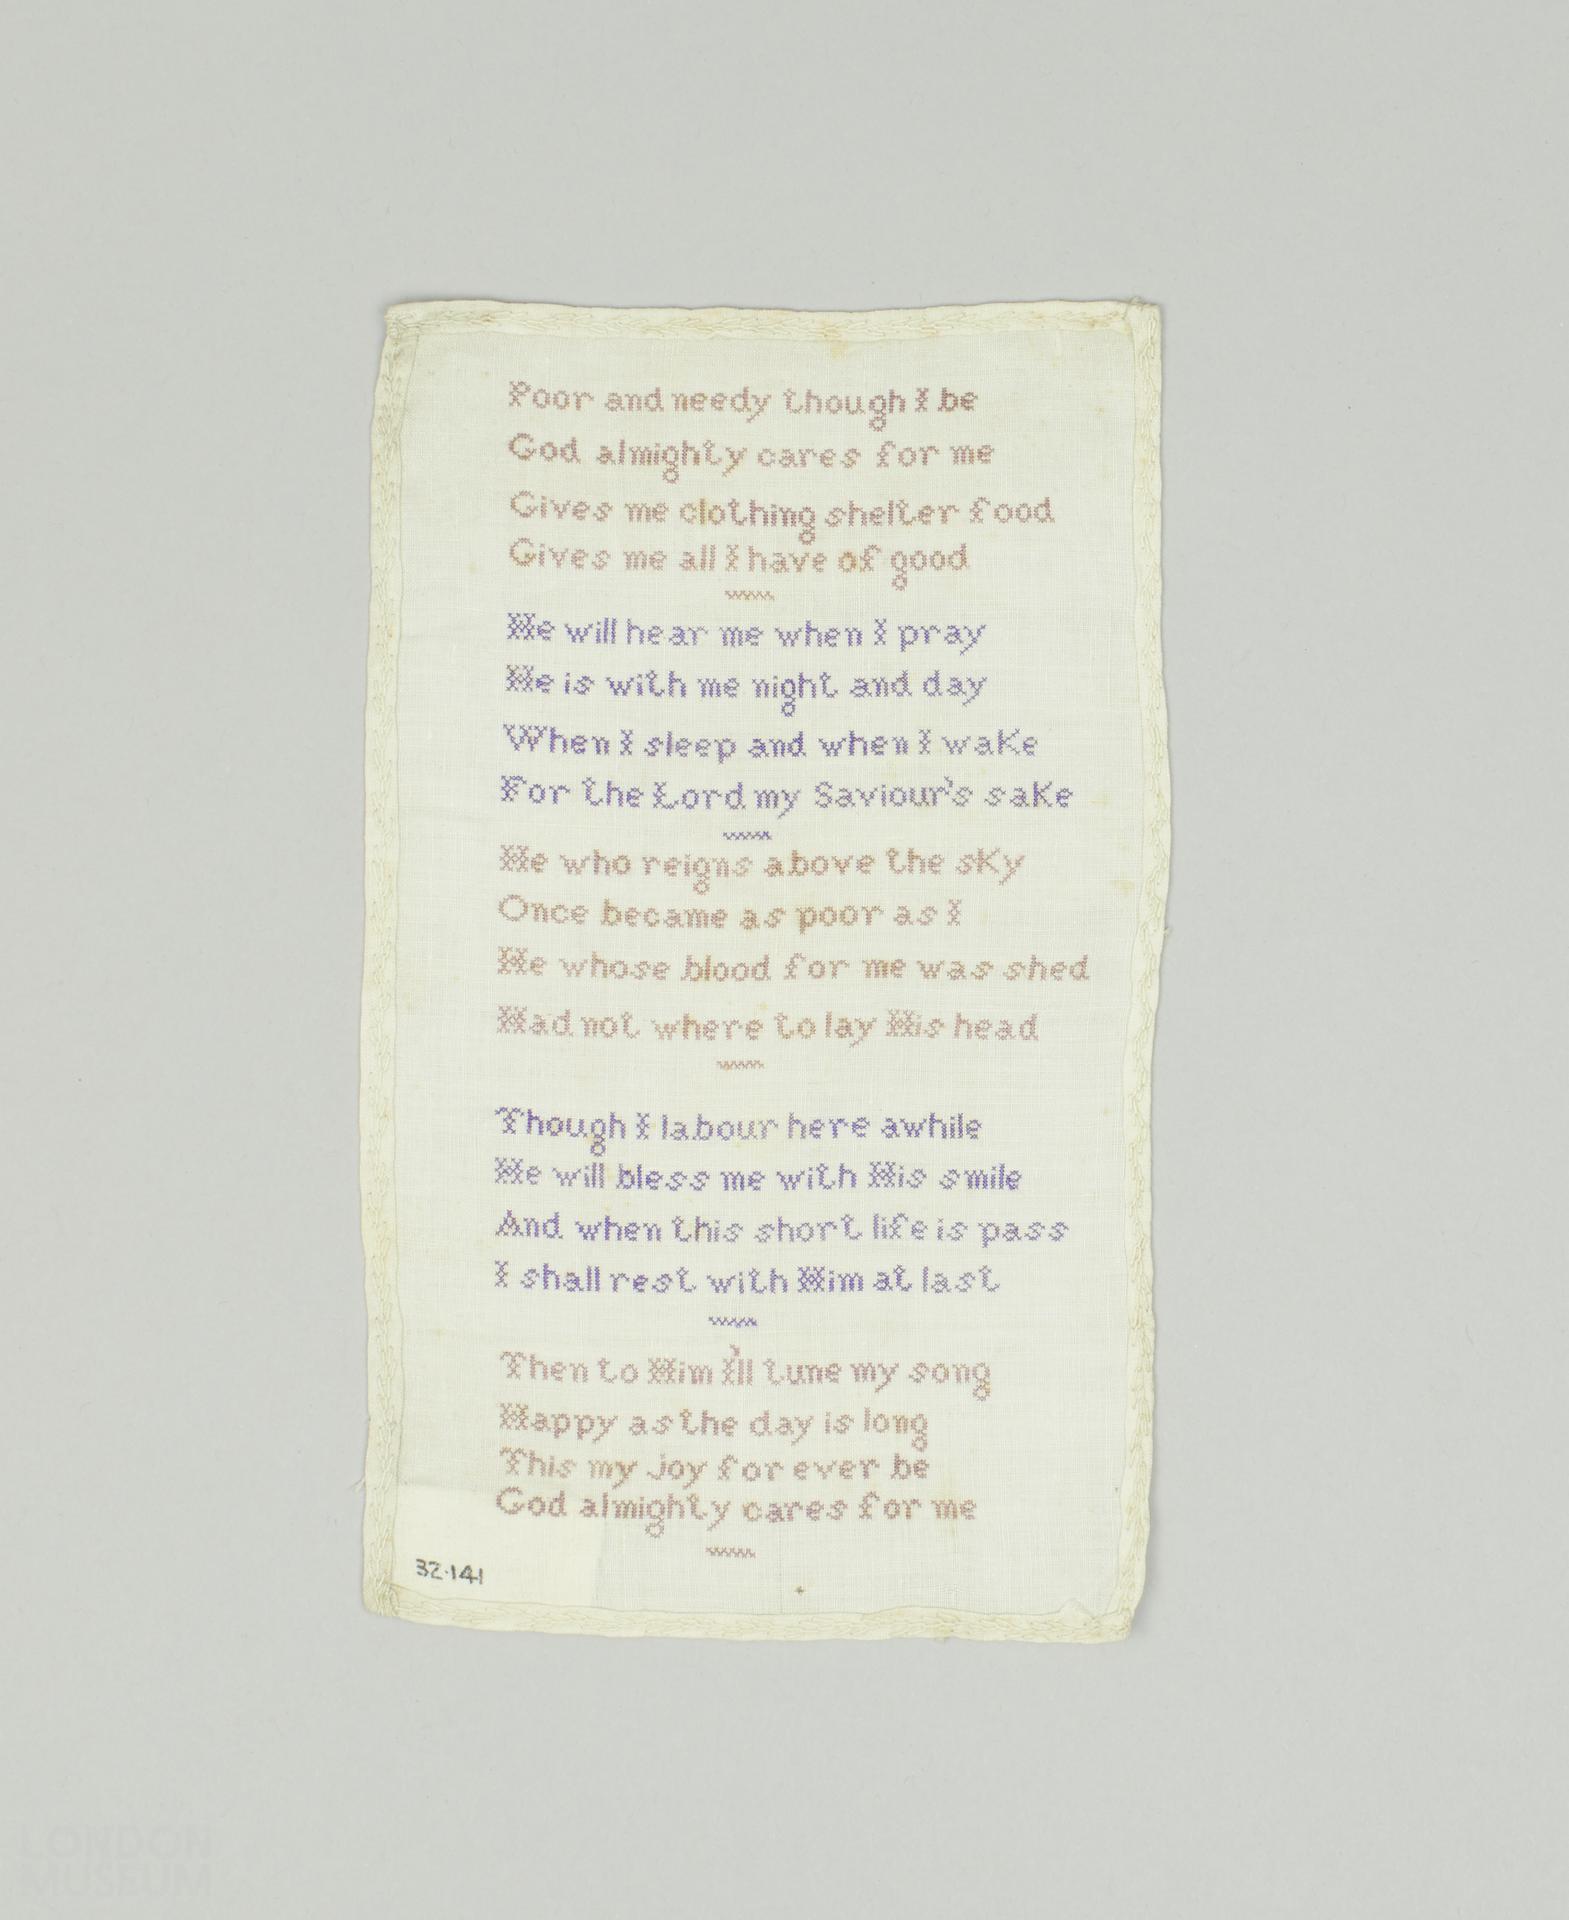 Poor and needy though I be
God almighty cares for me
Gives me clothing shelter food
Gives me all I have of good
He will hear me when I pray
He is with me night and day
When I sleep and when I wake
For the Lord my Saviour's sake
He who reigns above the sky
Once became as poor as I
He whose blood for me was shed
Had not where to lay His head
Though I labour here awhile
He will bless me with His smile
And when this short life is pass
I shall rest with Him at last
Then to Him I'll tune my song
Happy as the day is long
This my joy for ever be
God almighty cares for me
32.141
LONDON
MUSEUM